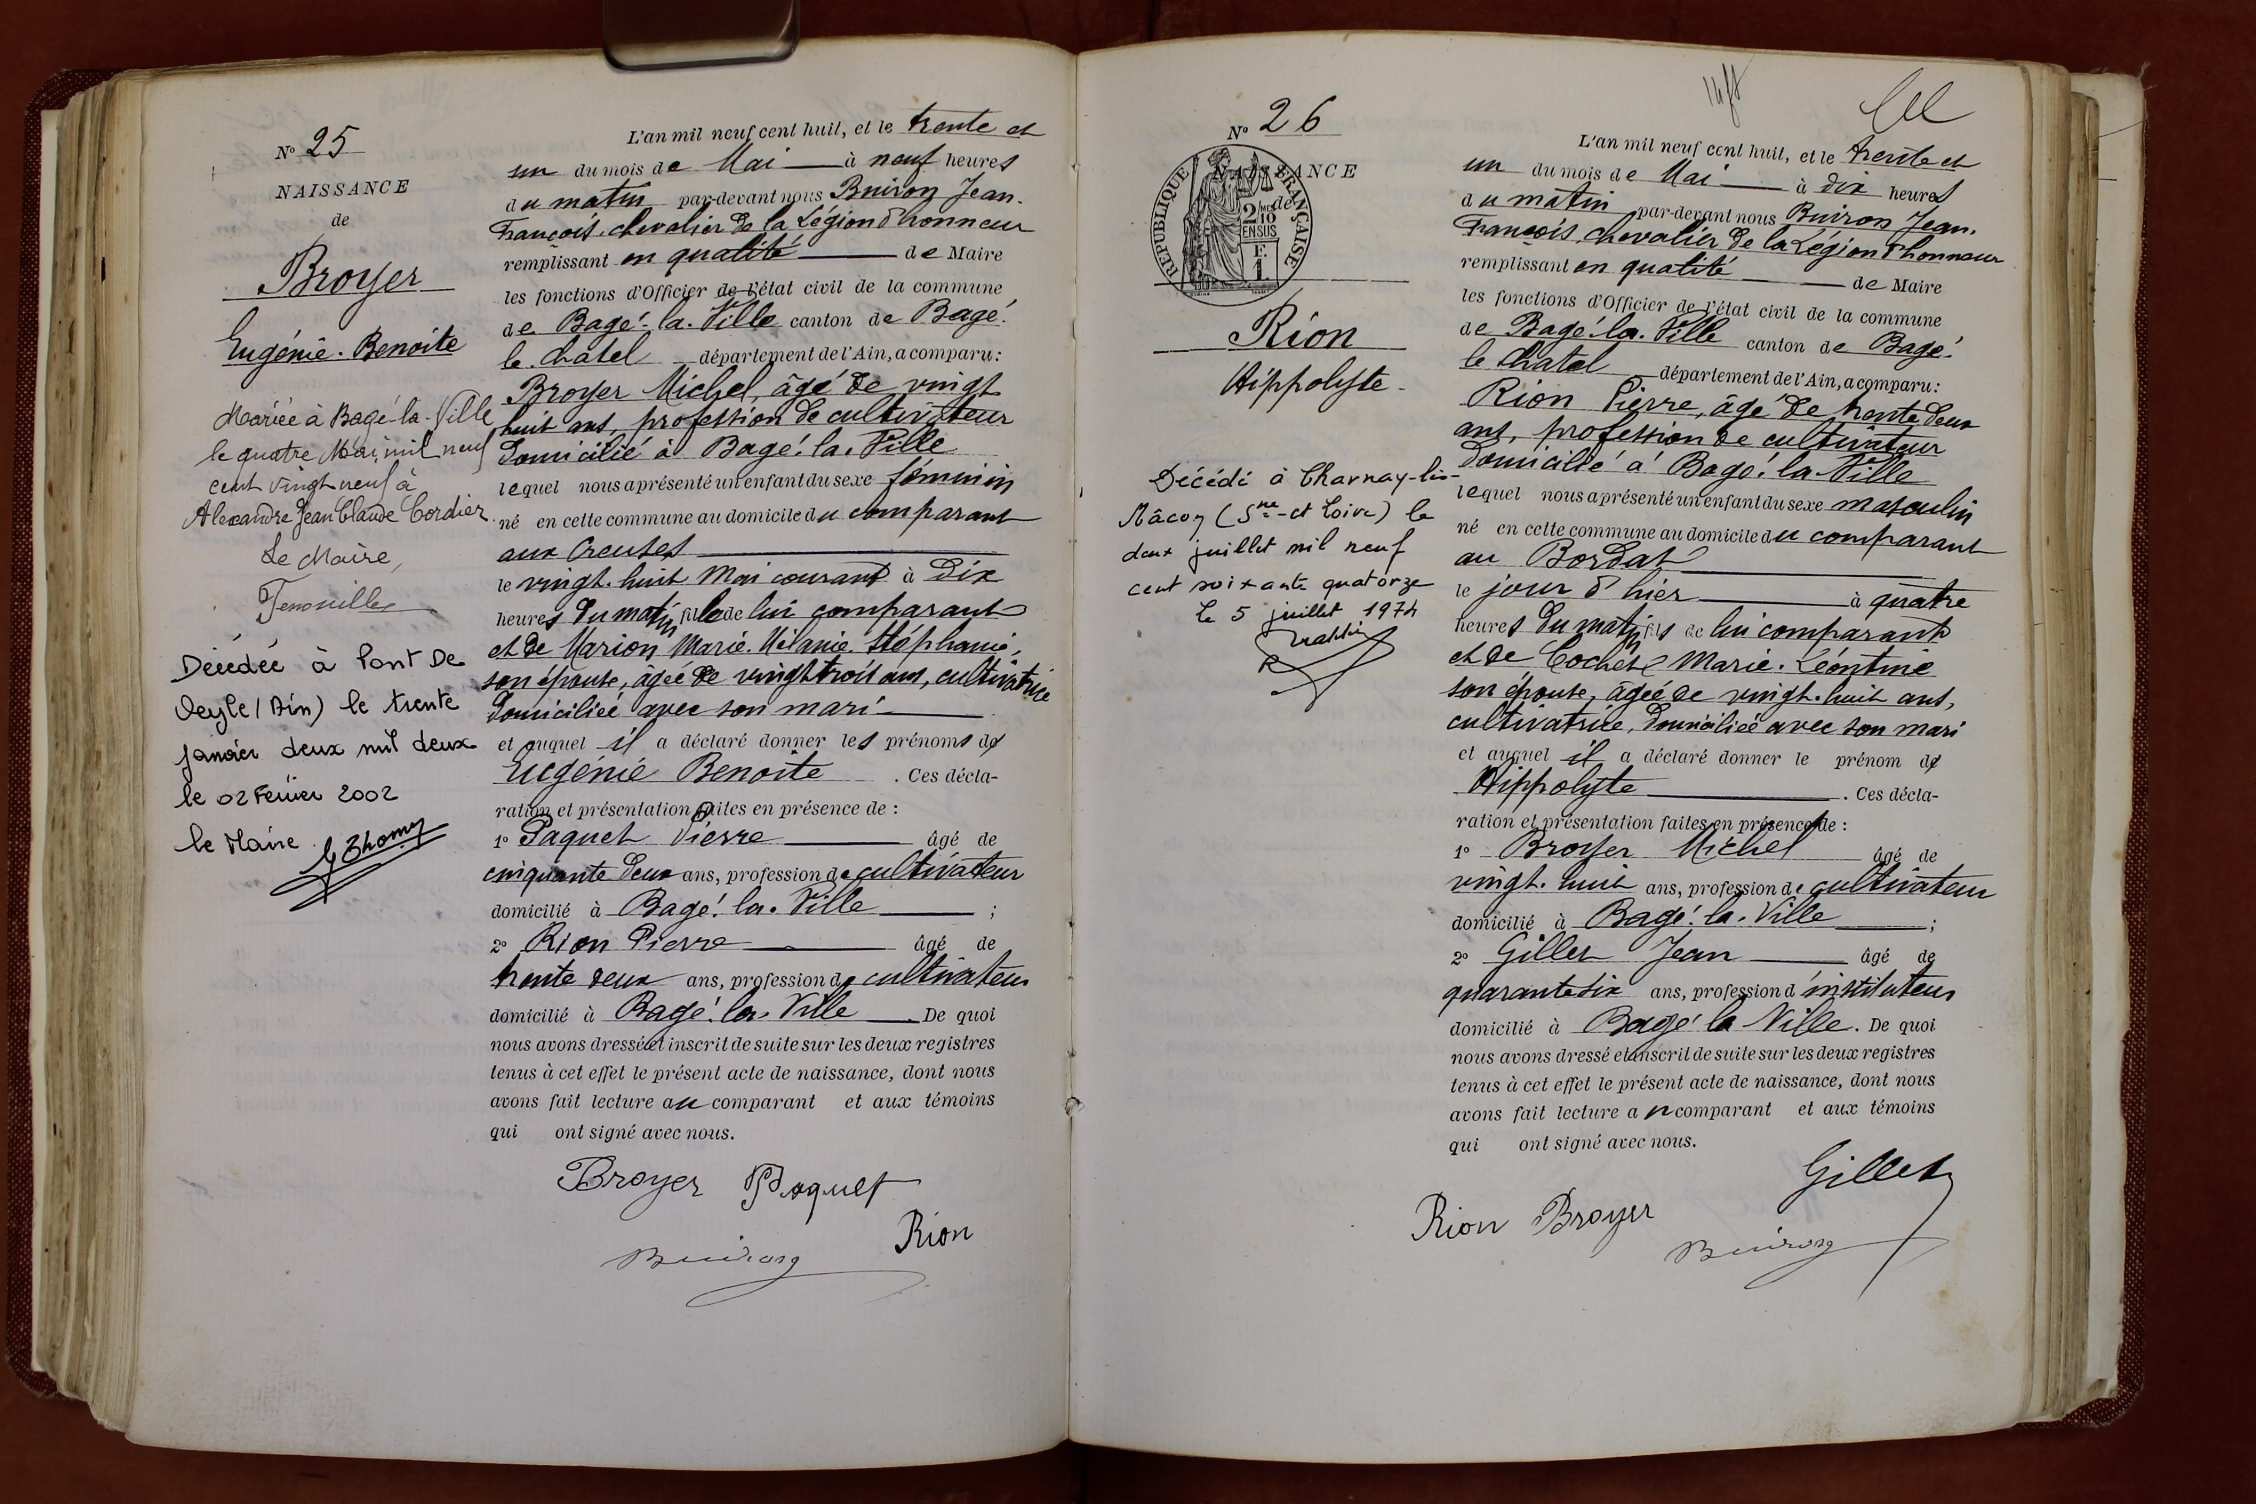 N° 25
NAISSANCE
de
Broyer
Eugénie. Benoite
Mariée à Bagé-la-Ville
le quatre Mai mil neuf
cent vingt neuf à
Alexandre Jean Claude Cordier.
Le Maire,
Décédée à Pont De
Veyle (Ain) le trente
janvier deux mil deux
le 02 Février 2002
le Maire
L'an mil neuf cent huit, et le trente et
un du mois de Mai à neuf heures
du matin par-devant nous Buiron Jean.
François. chevalier de la Légion d'honneur
remplissant en qualité de Maire
les fonctions d'Officier de l'état civil de la commune
de Bagé-la-Ville canton de Bagé.
le. Châtel département de l'Ain, a comparu:
Broyer Michel, âgé de vingt
huit ans, profession de cultivateur
domicilié à Bagé-la-Ville
lequel nous a présenté un enfant du sexe féminin
né en cette commune au domicile du comparant
aux Creuses
le vingt. huit Mai courant à dix
heures du matin fille de lui comparant
et de Marion Marie. Mélanie. Stéphanie,
son épouse, âgée de vingt trois ans, cultivatrice
domiciliée avec son mari
et auquel il a déclaré donner les prénoms de
Eugénie Benoite . Ces décla-
ration et présentation faites en présence de :
1° Paquet Pierre âgé de
cinquante deux ans, profession de cultivateur
domicilié à Bagé-la-Ville ;
2° Rion Pierre âgé de
trente deux ans, profession de cultivateur
domicilié à Bagé-la-Ville . De quoi
nous avons dressé et inscrit de suite sur les deux registres
tenus à cet effet le présent acte de naissance, dont nous
avons fait lecture au comparant et aux témoins
qui ont signé avec nous.
Broyer Paquet
Rion
Buiron
N° 26
NAISSANCE
de
RÉPUBLIQUE FRANÇAISE
2/10
EN SUS
F.
1
Rion
Hippolyte
Décédé à Charnay-lès-
Mâcon (Sne-et Loire) le
deux juillet mil neuf
cent soixante quatorze
Le 5 juillet 1974
L'an mil neuf cent huit, et le trente et
un du mois de Mai à dix heures
du matin par-devant nous Buiron Jean.
François, chevalier de la Légion d'honneur
remplissant en qualité de Maire
les fonctions d'Officier de l'état civil de la commune
de Bagé-la-Ville canton de Bagé.
le Châtel département de l'Ain, a comparu:
Rion Pierre, âgé de trente deux
ans, profession de cultivateur
domicilié à Bagé-la-Ville
lequel nous a présenté un enfant du sexe masculin
né en cette commune au domicile du comparant
au Bordat
le jour d'hier à quatre
heures du matin fils de lui comparant
et de Cochet Marie. Léontine
son épouse, âgée de vingt. huit ans,
cultivatrice, domiciliée avec son mari
et auquel il a déclaré donner le prénom de
Hippolyte . Ces décla-
ration et présentation faites en présence de :
1° Broyer Michel âgé de
vingt. huit ans, profession de cultivateur
domicilié à Bagé-la-Ville ;
2° Gillet Jean âgé de
quarante six ans, profession d'instituteur
domicilié à Bagé la Ville. De quoi
nous avons dressé et inscrit de suite sur les deux registres
tenus à cet effet le présent acte de naissance, dont nous
avons fait lecture au comparant et aux témoins
qui ont signé avec nous.
Gillet
Rion Broyer
Buiron